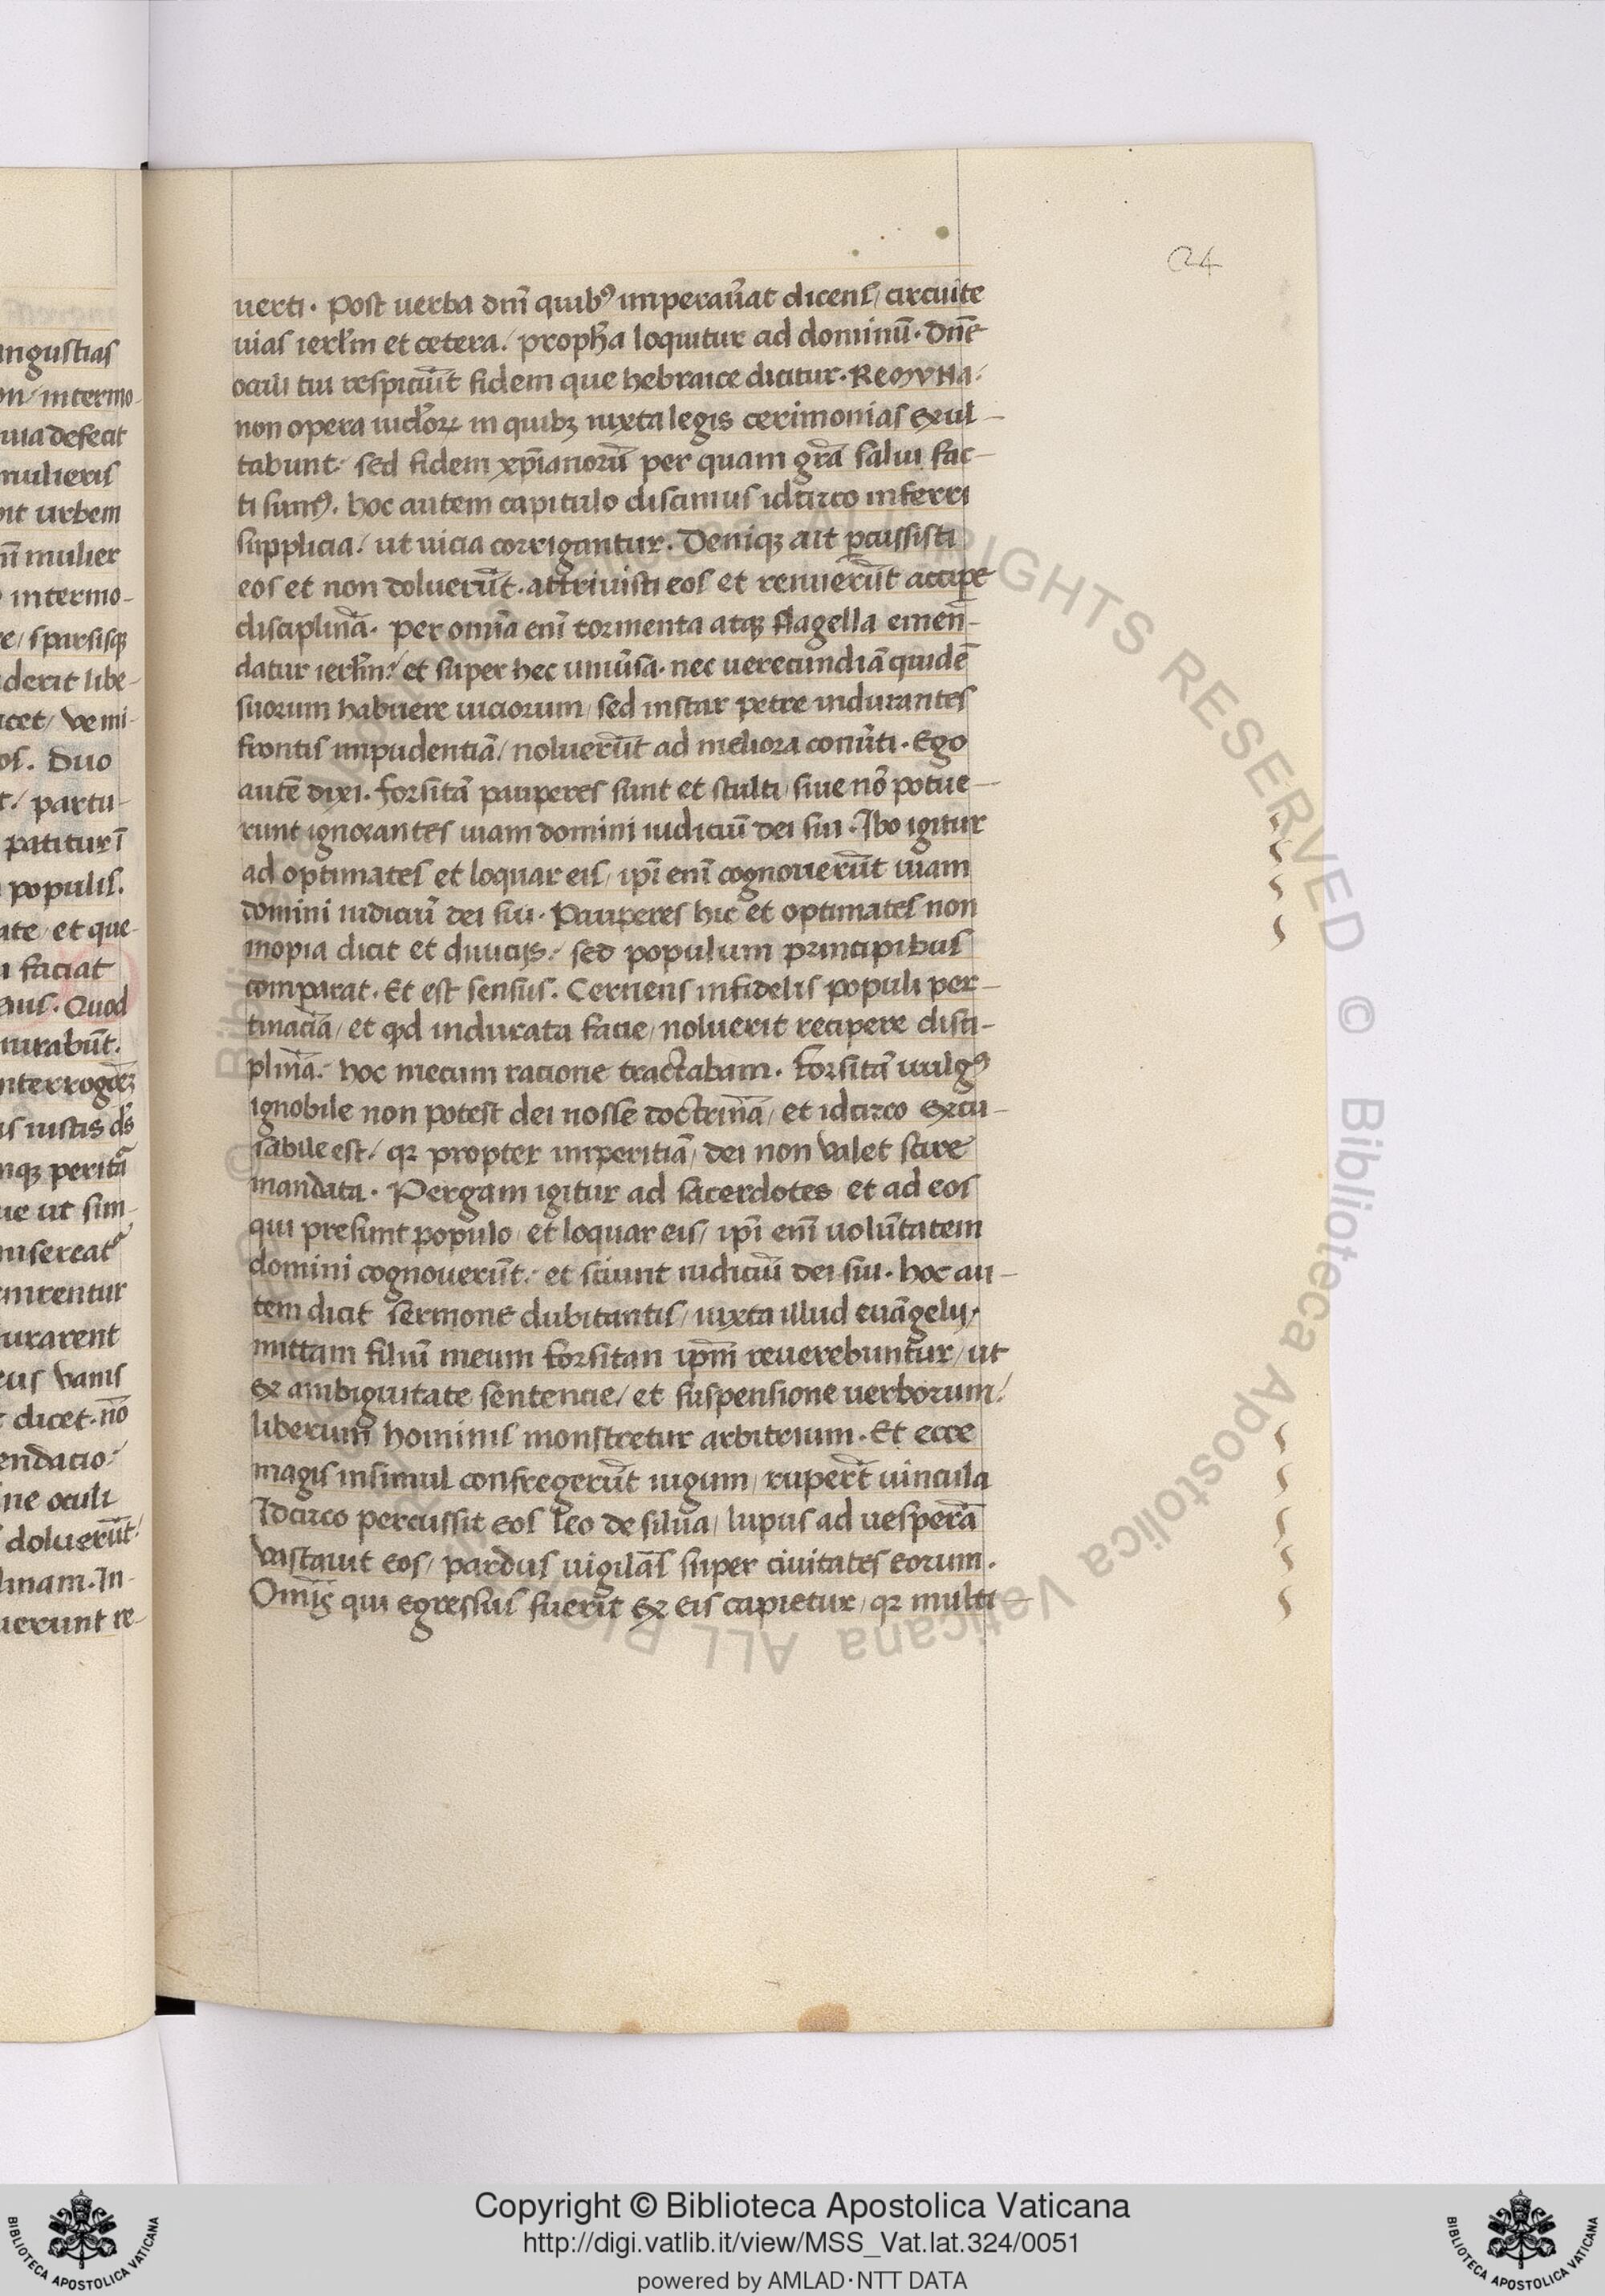 24
uerti. Post uerba dnı̄ quibꝰ imperau̅at dicens/ circuite
uias ierl̅m et cetera/ proph̅a loquitur ad dominū. Dn̅e
oculi tui respiciūt fidem que hebraice dicitur. REOMVNA.
non opera iud̅oꝝ in quibꝫ iuxta legis cerimonias exul-
tabunt. sed fidem xp̅ianorū per quam gr̅a salui fac-
ti sumꝰ. hoc autem capitulo discimus idcirco inferri
supplicia/ ut uicia corrigantur. Deniqꝫ ait ꝑcussisti
eos et non doluerūt. attriuisti eos et renuerūt accipe
disciplinā. per omīa enī tormenta atqꝫ flagella emen-
datur ierl̅m/ et super hec uniu̅sa. nec uerecundiā quidē
suorum habuere uiciorum/ sed instar petre indurantes
frontis impudentiā/ noluerūt ad meliora conu̅ti. Ego
autē dixi. forsitā pauperes sunt et stulti/ siue nō potue-
runt ignorantes uiam domini iudiciū dei sui. Ibo igitur
ad optimates et loquar eis/ ip̅i enī cognouerūt uiam
domini iudiciū dei sui. Pauperes hic et optimates non
inopia dicit et diuicijs. sed populum principibus
comparat. Et est sensus. Cernens infidelis populi per-
tinaciā/ et ꝙd indurata facie/ noluerit recipere disci-
plinā. hoc mecum racione tractabam. Forsitā uulgꝰ
ignobile non potest dei nosse doctrinā/ et idcirco excu-
sabile est/ qꝛ propter imperitiā/ dei non valet scire
mandata. Pergam igitur ad sacerdotes et ad eos
qui presunt populo/ et loquar eis/ ip̅i enī uolūtatem
domini cognouerūt. et sciunt iudiciū dei sui. hoc au-
tem dicit sermone dubitantis/ iuxta illud euāgelij.
mittam filiū meum forsitan ip̅m reuerebuntur/ ut
ex ambiguitate sentencie/ et suspensione uerborum/
liberum hominis monstretur arbitrium. Et ecce
magis insimul confregerūt iugum/ ruper̄t uincula
Idcirco percussit eos leo de silua/ lupus ad uesperā
vastauit eos/ pardus uigilās super ciuitates eorum.
Omīs qui egressus fuerit ex eis capietur/ qꝛ multi-
Copyright © Biblioteca Apostolica Vaticana
http://digi.vatlib.it/view/MSS_Vat.lat.324/0051
powered by AMLAD·NTT DATA